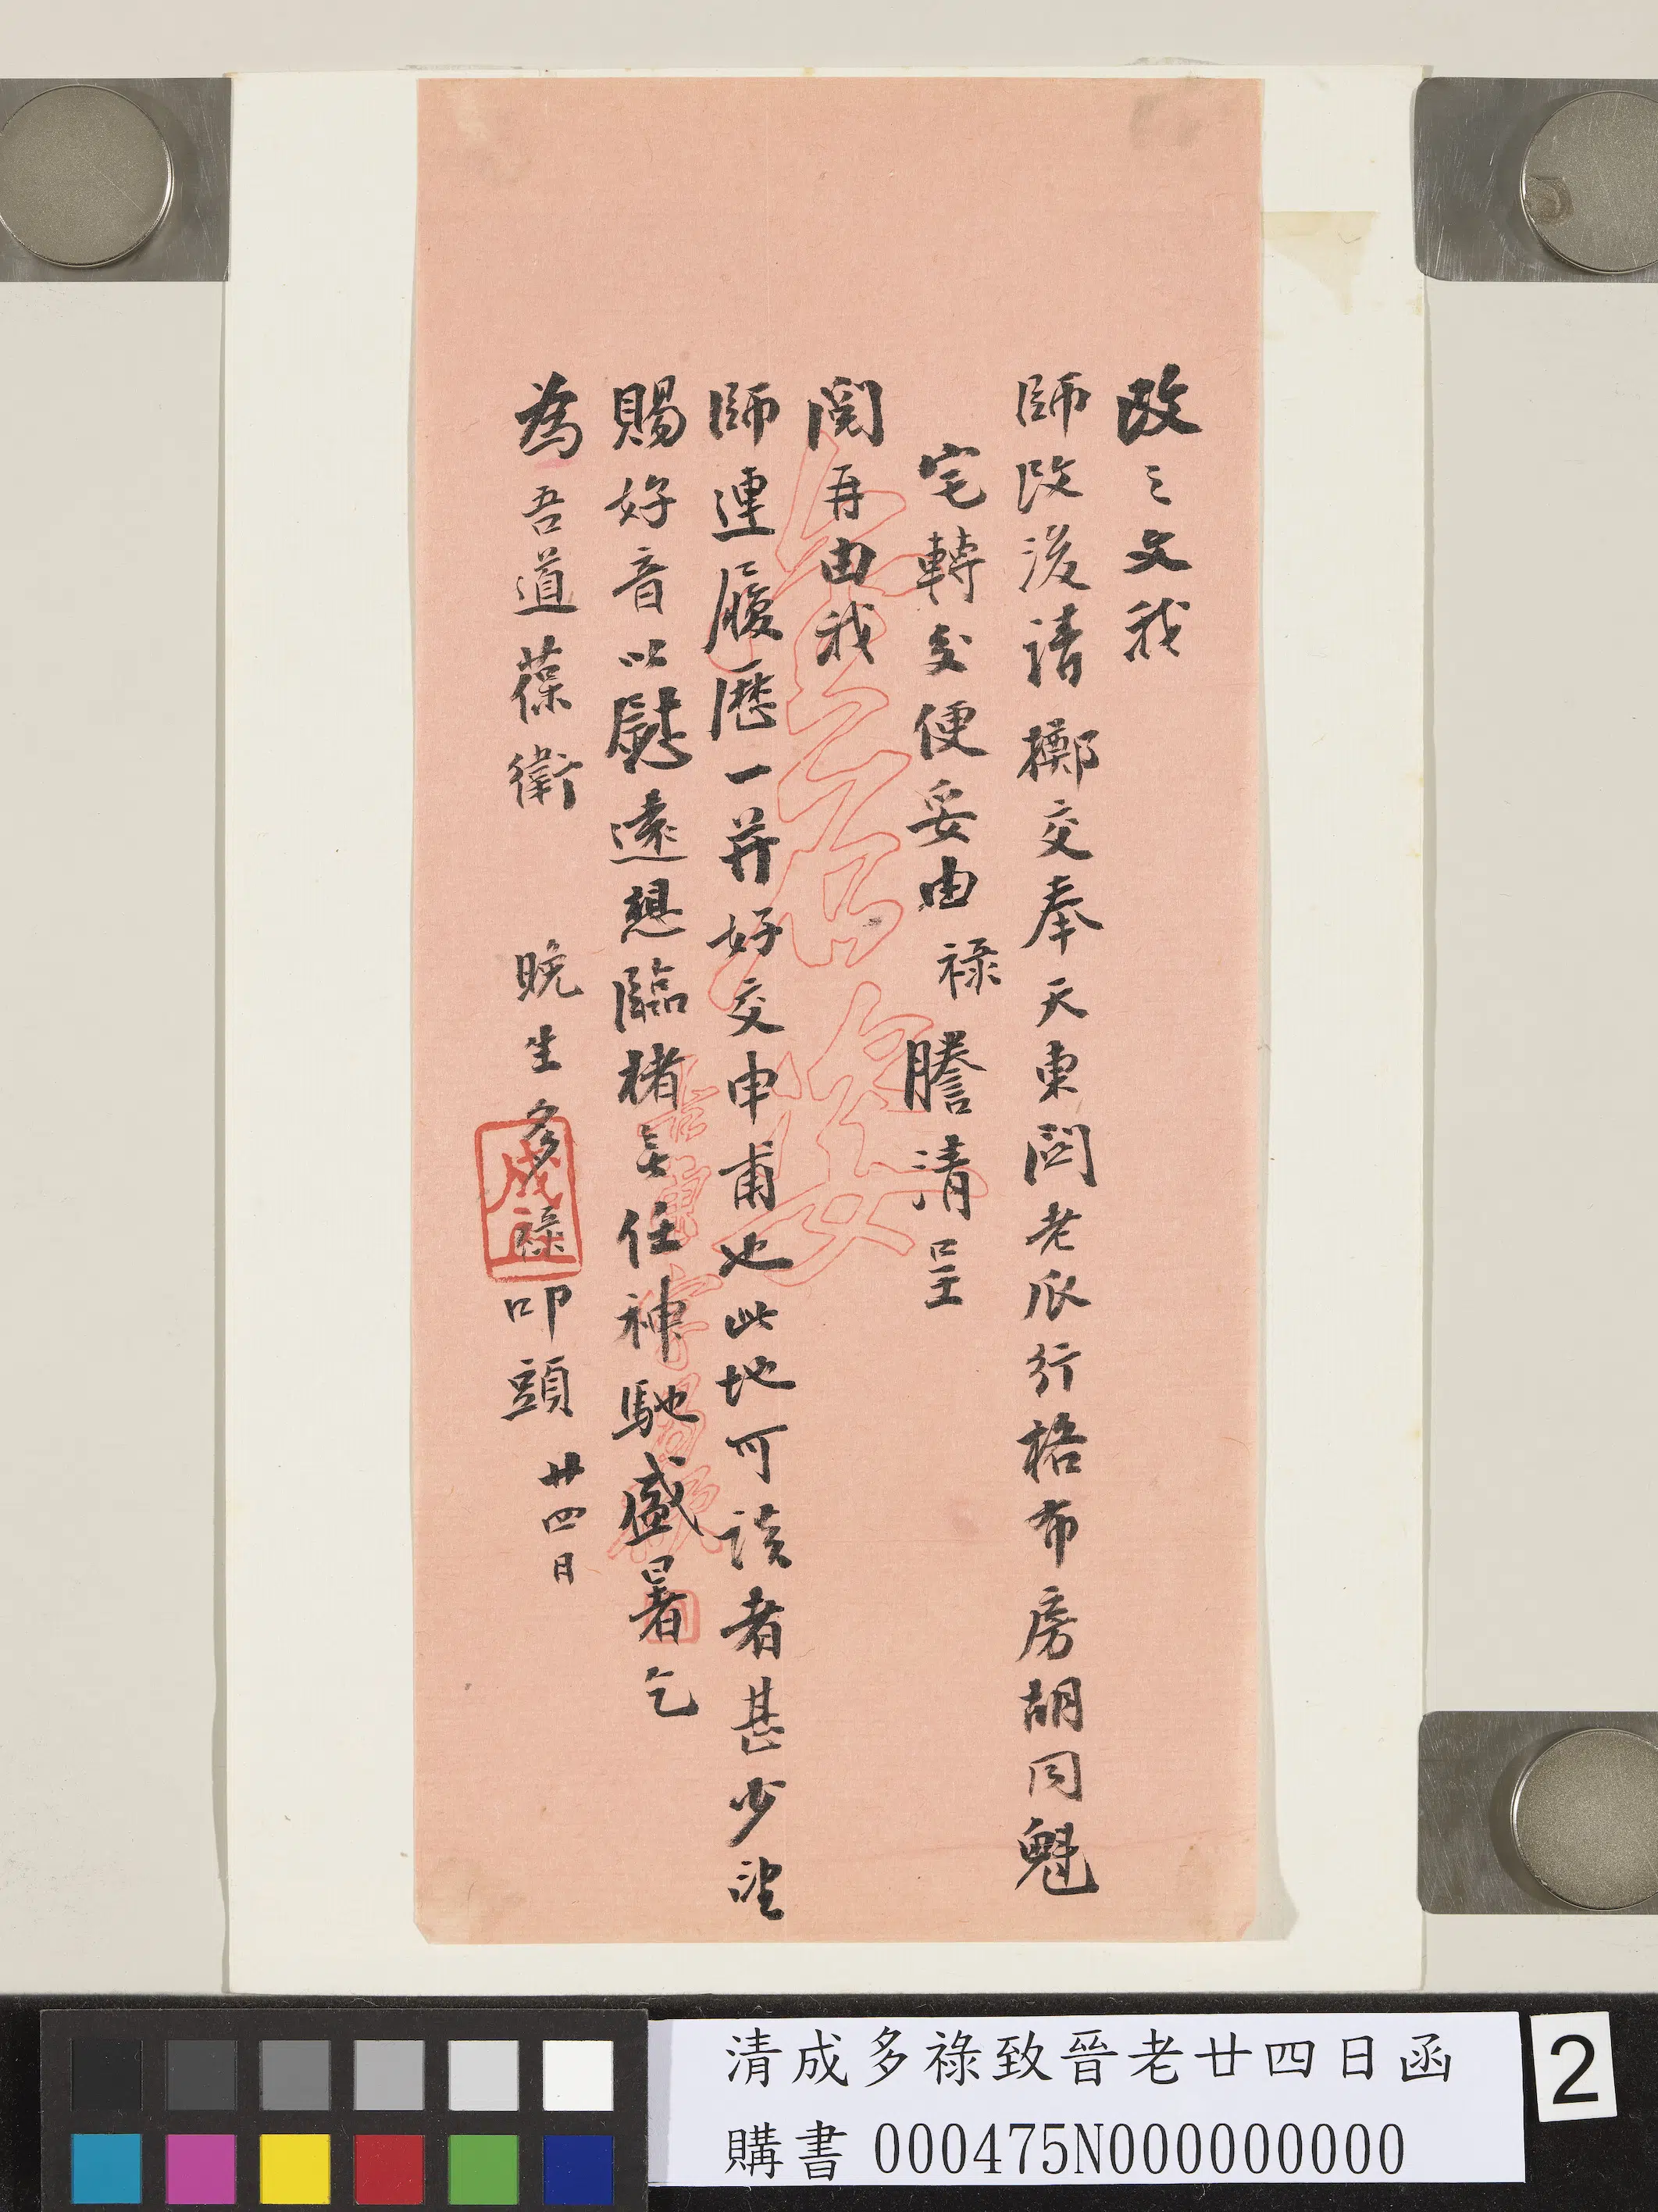 改之文我
師改後請擲交奉天東關老爪行格布房胡同魁
宅轉交便妥由祿謄清呈
閱再由我
師連履歷一并好交申甫也此地可談者甚少望
賜好音以慰遠想臨楮無任神馳盛暑乞
為吾道葆衛 晚生多祿叩頭 廿四日
成
清成多祿致晉老廿四日函
購書 000475N000000000
2